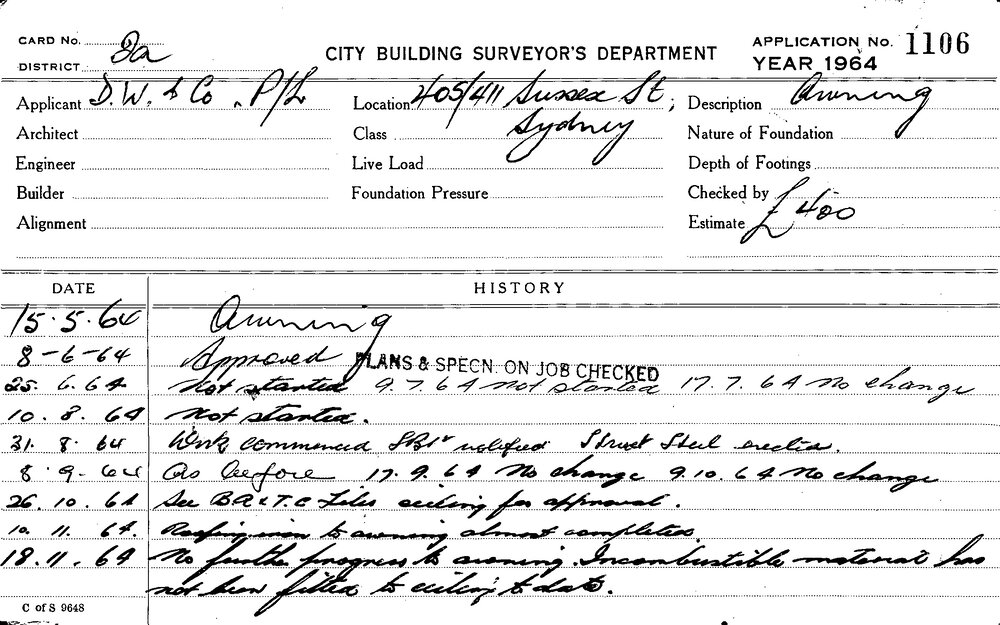 CARD No.
DISTRICT 2a
CITY BUILDING SURVEYOR'S DEPARTMENT
APPLICATION No. 1106
YEAR 1964
Applicant D.W. & Co. P/L
Location 405/411 Sussex St, Sydney
Description Awning
Architect
Class
Nature of Foundation
Engineer
Live Load
Depth of Footings
Builder
Foundation Pressure
Checked by
Alignment
Estimate £400
DATE HISTORY
15.5.64 Awning
8-6-64 Approved PLANS & SPECN. ON JOB CHECKED
25.6.64 Not started 9.7.64 Not started 17.7.64 No change
10.8.64 Not started.
31.8.64 Work commenced notified Struct Steel erected.
8.9.64 As before 17.9.64 No change 9.10.64 No change
26.10.64 See B.A & T.C Files ceiling for approval.
10.11.64. Roofing iron to awning almost completed.
18.11.64 No further progress to awning. Incombustible material has
not been fitted to ceiling to date.
C of S 9648